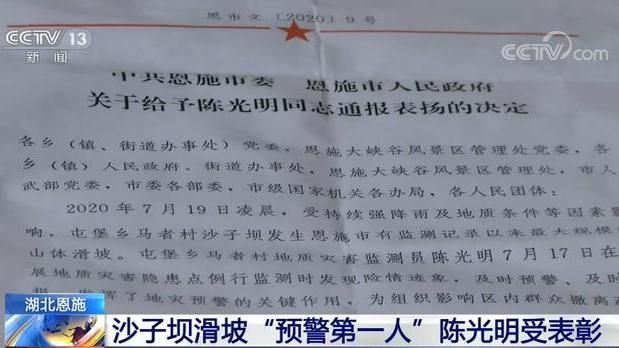 CCTV 13
新闻
CCTV.com
恩市文〔2020〕9号
中共恩施市委 恩施市人民政府
关于给予陈光明同志通报表扬的决定
各乡（镇、街道办事处）党委，恩施大峡谷风景区管理处党委，各
乡（镇）人民政府、街道办事处，恩施大峡谷风景区管理处，市人
武部党委，市委各部委，市级国家机关各办局，各人民团体：
2020年7月19日凌晨，受持续强降雨及地质条件等因素影
响，屯堡乡马者村沙子坝发生恩施市有监测记录以来最大规模
山体滑坡。屯堡乡马者村地质灾害监测员陈光明7月17日在
展地质灾害隐患点例行监测时发现险情迹象，及时预警、及时
发挥了地灾预警的关键作用，为组织影响区内群众撤离
湖北恩施
沙子坝滑坡“预警第一人”陈光明受表彰